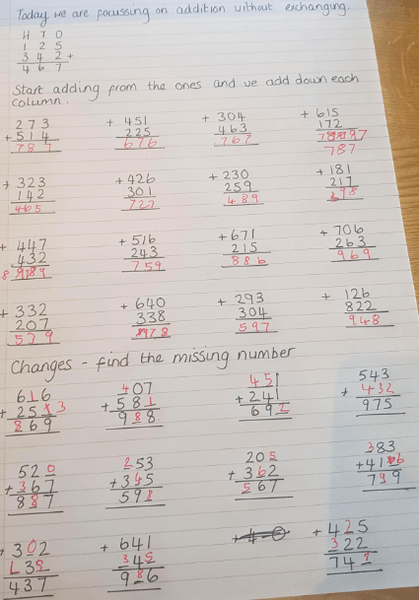 Today we are focussing on addition without exchanging.
H T O
1 2 5
3 4 2 +
4 6 7
Start adding from the ones and we add down each
column.
273 + 451 + 304 + 615
+ 514 225 463 172
787 676 767
787
+ 323 + 426 + 230 + 181
142 301 259 217
465 727 489 398
+ 447 + 516 + 671 + 706
432 243 215 263
759 886 969
+ 332 + 640 + 293 + 126
207 338 304 822
579 978 597 948
Changes - find the missing number
616 407 451 543
+ 253 + 581 + 241 + 432
869 988 692 975
520 253 205 383
+ 367 + 345 + 362 + 416
887 598 567 799
+ 302 + 641 + 425
135 345 322
437 986 747